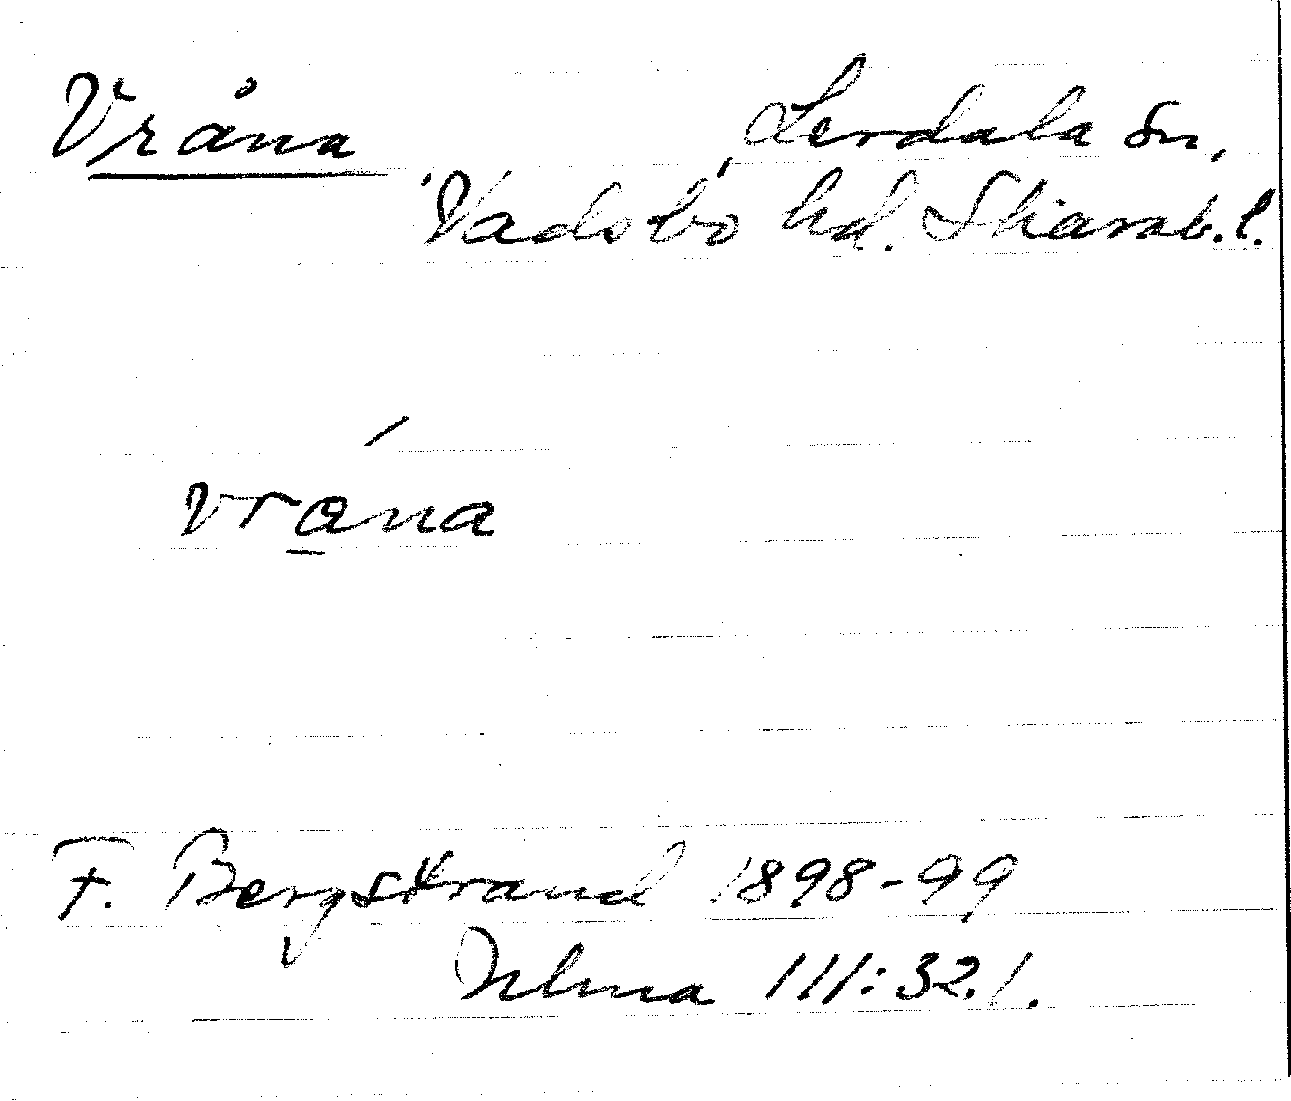 Vråna
Lerdala sn,
Vadsbo hd. Skarab. l.
vråna
F. Bergstrand 1898-99
Ulma 111:32.1.